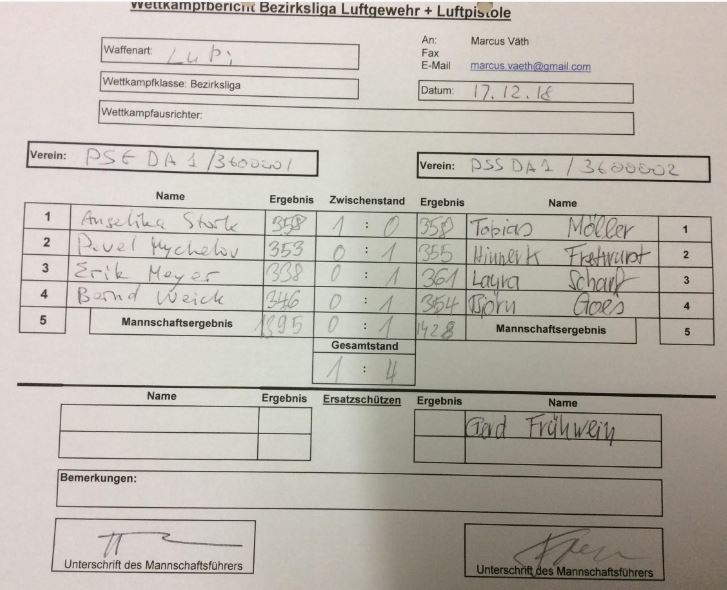 Wettkampfbericht Bezirksliga Luftgewehr + Luftpistole
Waffenart: LuPi
An: Marcus Väth
Fax
E-Mail marcus.vaeth@gmail.com
Wettkampfklasse: Bezirksliga
Datum: 17.12.18
Wettkampfausrichter:
Verein: PSE DA 1 / 3600001
Verein: DSS DA 1 / 3600002
Name Ergebnis Zwischenstand Ergebnis Name
1 Angelika Stork 358 1 : 0 358 Tobias Möller 1
2 Pavel Mychelov 353 0 : 1 355 Hinnerk 2
3 Erik Meyer 338 0 : 1 361 Layra Scharf 3
4 Bernd Weick 346 0 : 1 354 Björn Goes 4
5 Mannschaftsergebnis 1395 0 : 1 1428 Mannschaftsergebnis 5
Gesamtstand
1 : 4
Name Ergebnis Ersatzschützen Ergebnis Name
Gerd Frühwein
Bemerkungen:
Unterschrift des Mannschaftsführers
Unterschrift des Mannschaftsführers